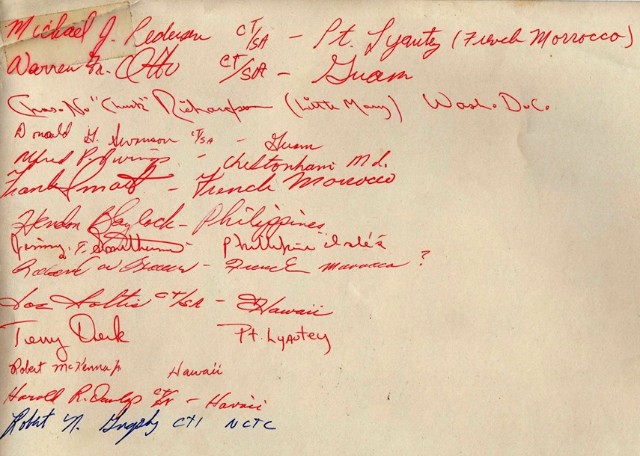 Michael J. Pedersen CT/SA - Pt. Lyautey (French Morrocco)
Warren Otto CT/SA - Guam
Chas. "Chuck" Richardson (Little Mary) Wash. D.C.
Donald G. Swanson CT/SA - Guam
Alfred P. - Cheltonham Md.
Frank Smatt - French Morrocco
Hendon Blaylock - Philippines
Jimmy F. - Phillipine
Robert - French Morocco ?
Joe Soltis CT/SA - Hawaii
Terry Derk Pt. Lyautey
Robert McKenna Jr Hawaii
Harold R. Dunlap - Hawaii
Robert N. CT1 NCTC